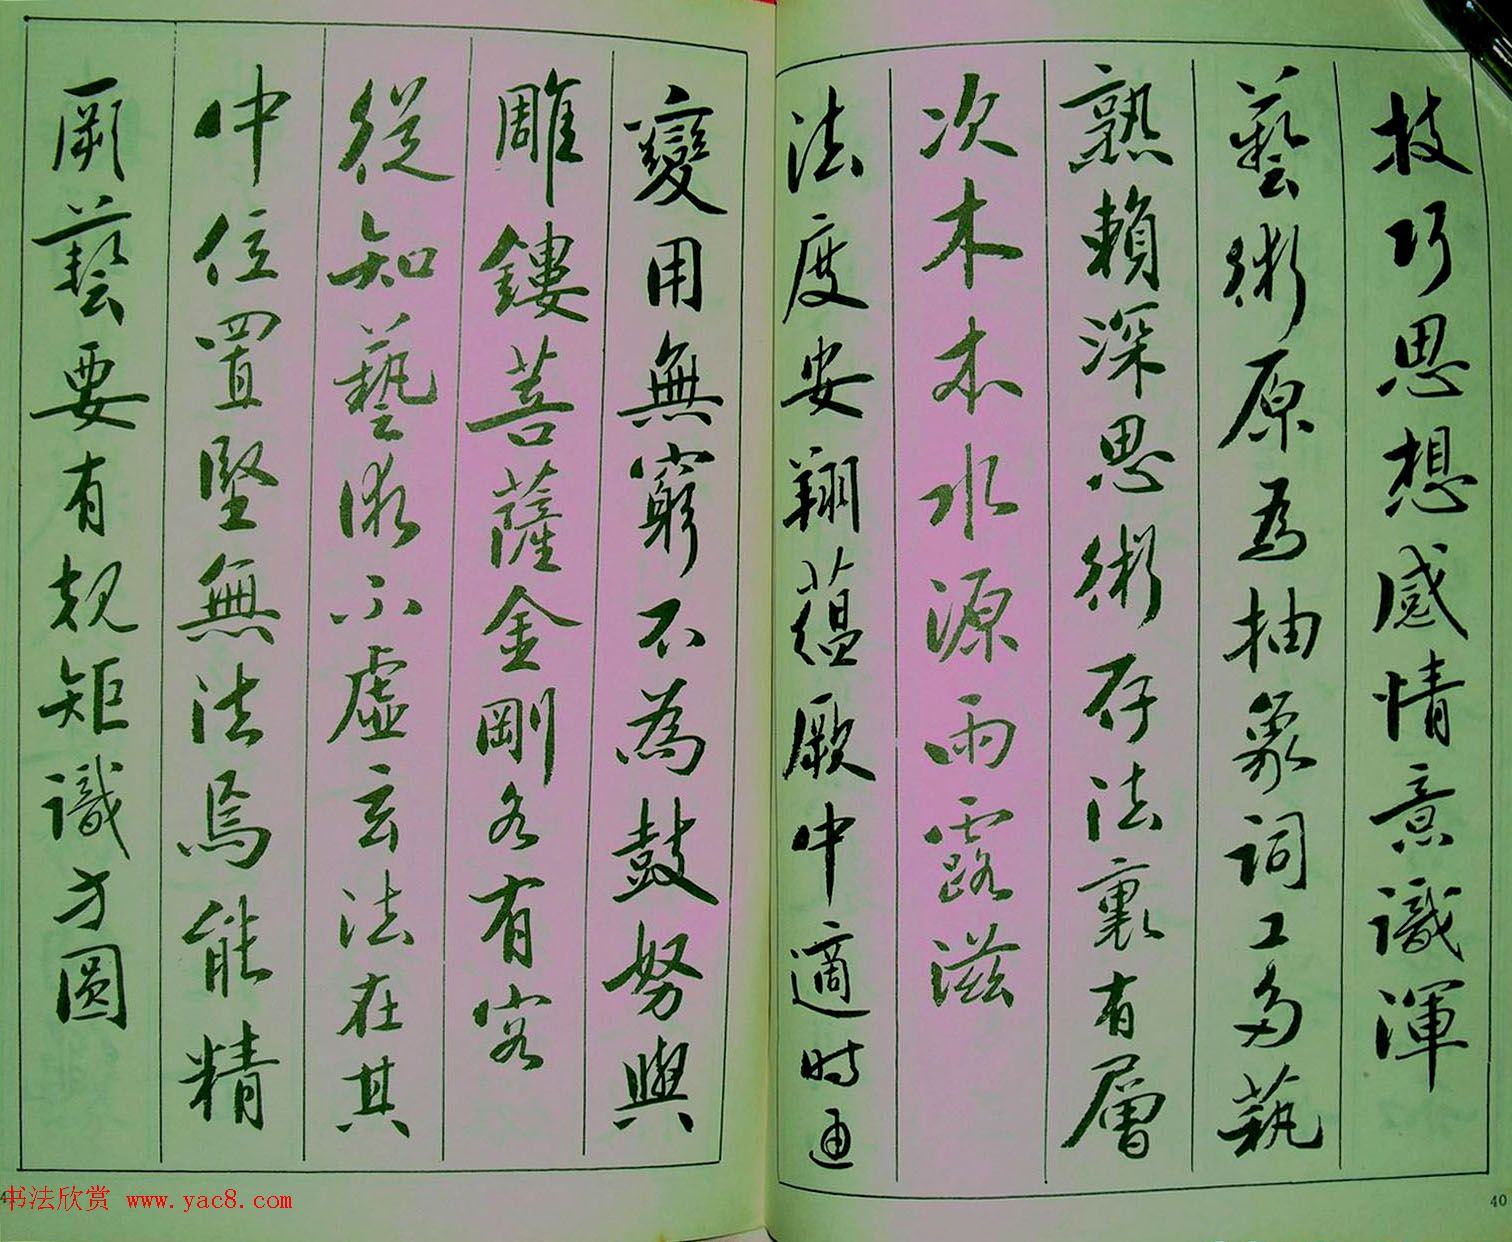 技巧思想感情意識渾
藝術原為抽象詞工多藝
熟賴深思術存法裏有層
次木本水源雨露滋
法度安翔蕴厥中適時通
變用無窮不為鼓努與
雕鏤菩薩金剛各有容
從知藝術不虛玄法在其
中位置堅無法焉能精
厥藝要有規矩識方圓
40
4
书法欣赏 www.yac8.com